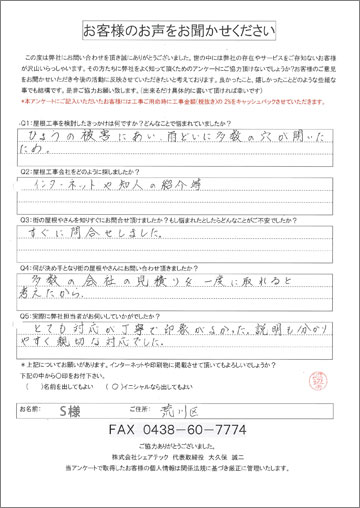 お客様のお声をお聞かせください
この度は弊社にお問い合わせを頂き誠にありがとうございました。世の中には弊社の存在やサービスをご存知ないお客様
が沢山いらっしゃいます。その方たちに弊社をよく知って頂くためのアンケートにご協力頂けないでしょうか?お客様のご意見
をお聞かせいただき今後の活動に反映させていただきたいと考えております。良かったこと、嬉しかったことどのような些細な
事でも結構です。是非ご協力お願い致します。(出来るだけ具体的に書いて頂ければ幸いです)
*本アンケートにご記入いただいたお客様には工事ご用命時に工事金額(税抜き)の2%をキャッシュバックさせていただきます。
Q1:屋根工事を検討したきっかけは何ですか?どんなことで悩まれていましたか?
ひょうの被害にあい、雨どいに多数の穴が開いた
ため。
Q2:屋根工事会社をどのように探しましたか?
インターネットや知人の紹介等
Q3:街の屋根やさんを知りすぐにお問合せ頂けましたか?もし悩まれたとしたらどんなことがご不安でしたか?
すぐに問合せしました。
Q4:何が決め手となり街の屋根やさんにお問い合わせ頂きましたか?
多数の会社の見積りを一度に取れると
考えたから。
Q5:実際に弊社担当者がお伺いしていかがでしたか?
とても対応が丁寧で印象がよかった。説明も分かり
やすく親切な対応でした。
*上記についてお願いがあります。インターネットや印刷物に掲載させて頂いてもよろしいでしょうか?
下記の中から〇印をお付下さい。
( )名前を出してもよい (〇)イニシャルなら出してもよい
お名前: S様 ご住所: 荒川区
FAX 0438-60-7774
ご協力ありがとうございました。
株式会社シェアテック 代表取締役 大久保 誠二
当アンケートで取得したお客様の個人情報は関係法規に基づき厳正に管理いたします。